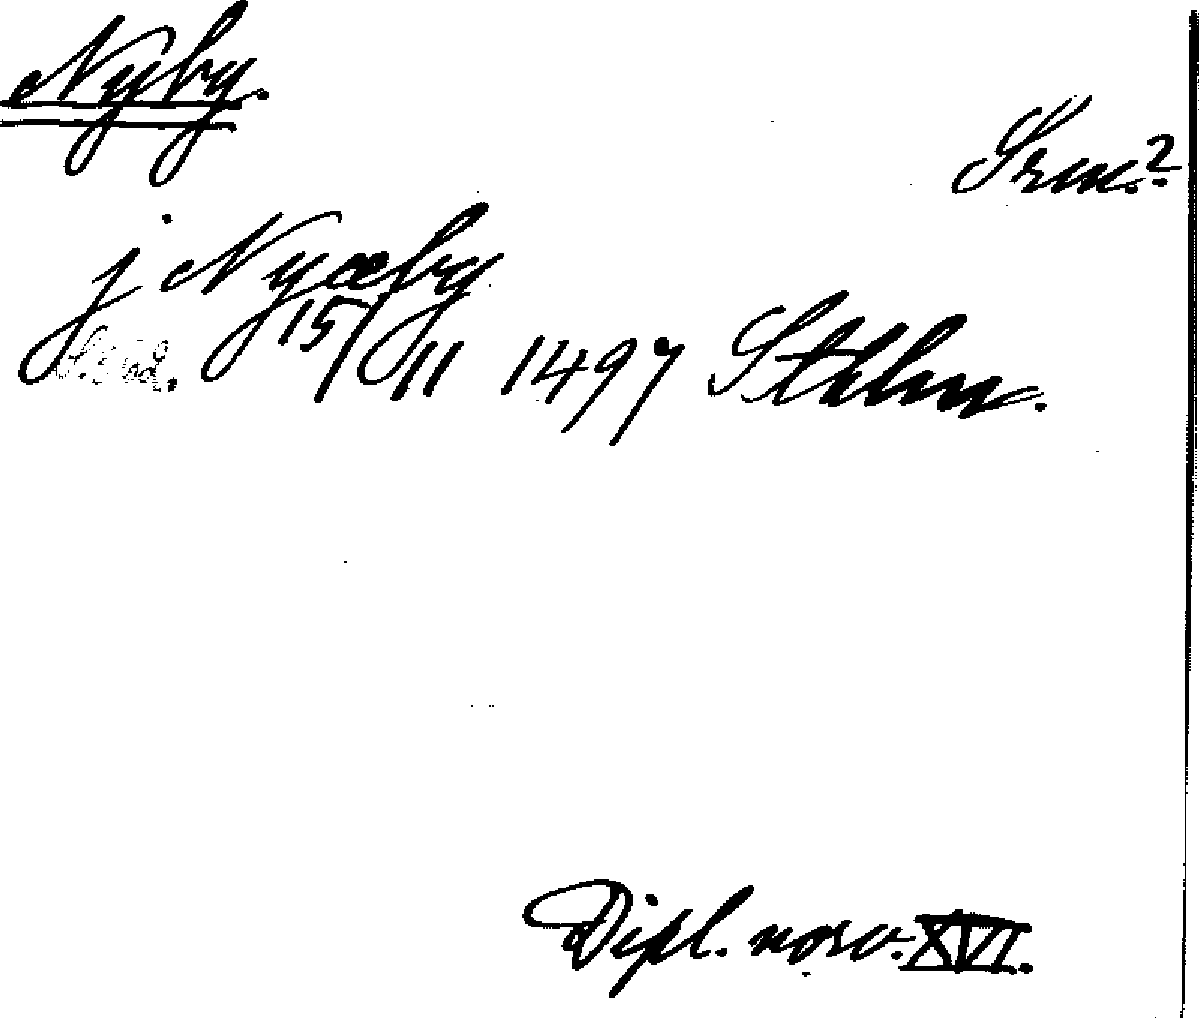 Nyby.
Srm.?
j Nyæby
15/11 1497 Sthlm.
Dipl. norv. XVI.